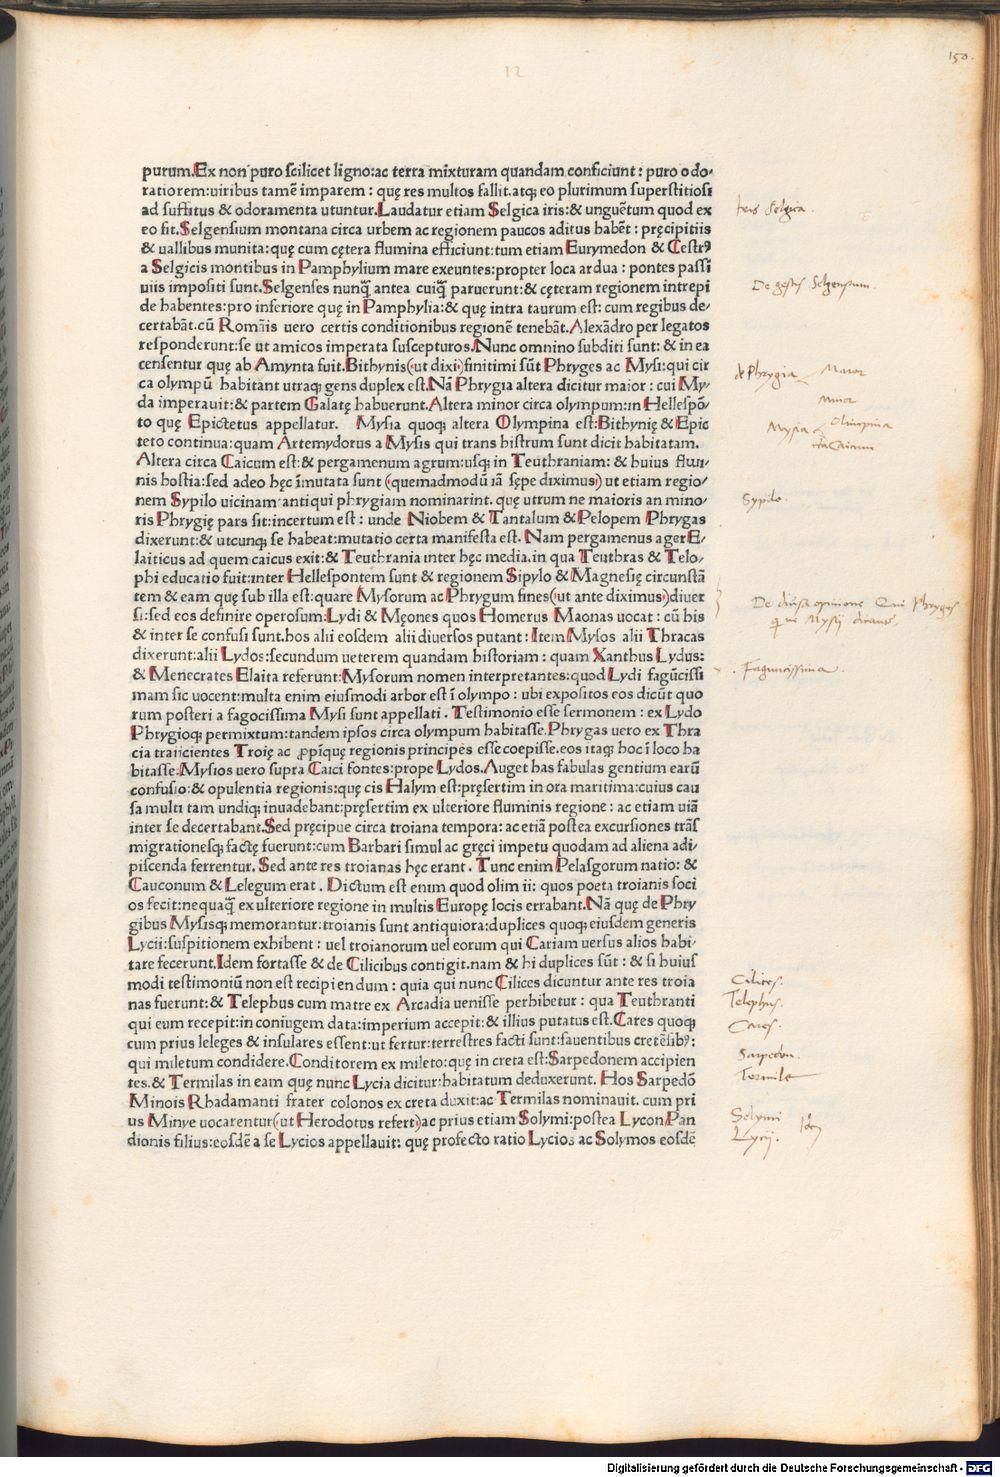 150.
12
purum.Ex non puro scilicet ligno:ac terra mixturam quandam conficiunt: puro odo-
ratiorem:uiribus tamē imparem: quę res multos fallit.atq; eo plurimum superstitiosi
ad suffitus & odoramenta utuntur.Laudatur etiam Selgica iris:& unguētum quod ex
eo fit.Selgensium montana circa urbem ac regionem paucos aditus habēt: pręcipitiis
& uallibus munita:quę cum cętera flumina efficiunt:tum etiam Eurymedon & Cestrꝰ
a Selgicis montibus in Pamphylium mare exeuntes:propter loca ardua: pontes passī
uiis impositi sunt.Selgenses nunq̄ antea cuiq̄ paruerunt:& cęteram regionem intrepi
de habentes:pro inferiore quę in Pamphylia:& quę intra taurum est: cum regibus de-
certabāt.cū Romāis uero certis conditionibus regionē tenebāt.Alexādro per legatos
responderunt:se ut amicos imperata suscepturos.Nunc omnino subditi sunt: & in ea
censentur quę ab Amynta fuit.Bithynis(ut dixi)finitimi sūt Phryges ac Mysi:qui cir
ca olympū habitant utraq; gens duplex est.Nā Phrygia altera dicitur maior: cui My-
da imperauit:& partem Galatę habuerunt.Altera minor circa olympum:in Hellespō-
to quę Epictetus appellatur. Mysia quoq; altera Olympina est:Bithynię & Epic
teto continua:quam Artemydorus a Mysis qui trans histrum sunt dicit habitatam.
Altera circa Caicum est:& pergamenum agrum:usq; in Teuthraniam: & huius flui-
nis hostia:sed adeo hęc īmutata sunt (quemadmodū iā sępe diximus) ut etiam regio-
nem Sypilo uicinam antiqui phrygiam nominarint. quę utrum ne maioris an mino-
ris Phrygię pars sit:incertum est: unde Niobem & Tantalum & Pelopem Phrygas
dixerunt:& utcunq; se habeat:mutatio certa manifesta est. Nam pergamenus ager E-
laiticus ad quem caicus exit:& Teuthrania inter hęc media.in qua Teuthras & Telo-
phi educatio fuit:inter Hellespontem sunt & regionem Sipylo & Magnesię circunstā
tem & eam quę sub illa est:quare Mysorum ac Phrygum fines(ut ante diximus)diuer
si:sed eos definire operosum:Lydi & Męones quos Homerus Maonas uocat: cū his
& inter se confusi sunt.hos alii eosdem alii diuersos putant: Item Mysos alii Thracas
dixerunt:alii Lydos:secundum ueterem quandam historiam: quam Xanthus Lydus:
& Menecrates Elaita referunt:Mysorum nomen interpretantes:quod Lydi fagūcissi
mam sic uocent:multa enim eiusmodi arbor est ī olympo: ubi expositos eos dicūt quo
rum posteri a fagocissima Mysi sunt appellati. Testimonio esse sermonem: ex Lydo
Phrygioq; permixtum:tandem ipsos circa olympum habitasse.Phrygas uero ex Thra
cia traiicientes Troię ac ꝓpīquę regionis principes esse coepisse.eos itaq; hoc ī loco ha
bitasse:Mysios uero supra Caici fontes:prope Lydos.Auget has fabulas gentium earū
confusio:& opulentia regionis:quę cis Halym est:pręsertim in ora maritima:cuius cau
sa multi tam undiq; inuadebant:pręsertim ex ulteriore fluminis regione: ac etiam uiā
inter se decertabant.Sed pręcipue circa troiana tempora:ac etiā postea excursiones trās
migrationesq; factę fuerunt:cum Barbari simul ac gręci impetu quodam ad aliena adi
piscenda ferrentur. Sed ante res troianas hęc erant. Tunc enim Pelasgorum natio: &
Cauconum & Lelegum erat. Dictum est enim quod olim ii: quos poeta troianis soci
os fecit:nequaq̄ ex ulteriore regione in multis Europę locis errabant.Nā quę de Phry
gibus Mysisq; memorantur:troianis sunt antiquiora:duplices quoq; eiusdem generis
Lycii:suspitionem exhibent: uel troianorum uel eorum qui Cariam uersus alios habi-
tare fecerunt.Idem fortasse & de Cilicibus contigit.nam & hi duplices sūt: & si huius
modi testimoniū non est recipiendum: quia qui nunc Cilices dicuntur ante res troia
nas fuerunt:& Telephus cum matre ex Arcadia uenisse perhibetur: qua Teuthranti
qui eum recepit:in coniugem data:imperium accepit:& illius putatus est.Cares quoq;
cum prius leleges & insulares essent:ut fertur:terrestres facti sunt:fauentibus cretēsibꝰ:
qui miletum condidere.Conditorem ex mileto:quę in creta est:Sarpedonem accipien
tes.& Termilas in eam quę nunc Lycia dicitur:habitatum deduxerunt. Hos Sarpedō
Minois Rhadamanti frater colonos ex creta duxit:ac Termilas nominauit. cum pri
us Minye uocarentur(ut Herodotus refert)ac prius etiam Solymi:postea Lycon Pan
dionis filius:eosdē a se Lycios appellauit: quę profecto ratio Lycios ac Solymos eosdē
Iris Selgica.
De gestis Selgensium.
de Phrygia Maior
minor
Mysia Olimpina
circa Caicum
Sypilo.
De diuersa opinione Qui Phryges
qui Mysii dicantur.
Faguncissima.
Cilices.
Telephus.
Cares.
Sarpedon.
Termile
Solymi
Lycij.
Digitalisierung gefördert durch die Deutsche Forschungsgemeinschaft - DFG